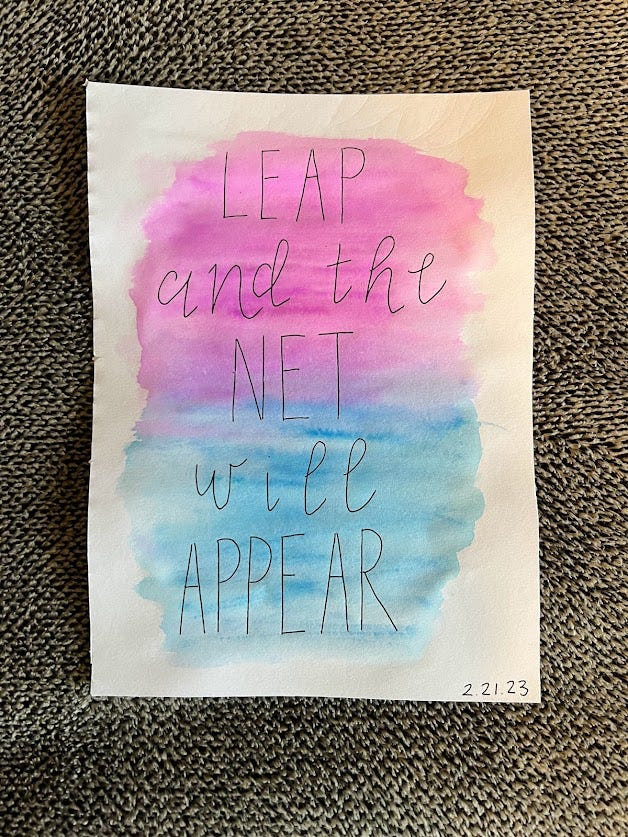 LEAP
and the
NET
will
APPEAR
2.21.23